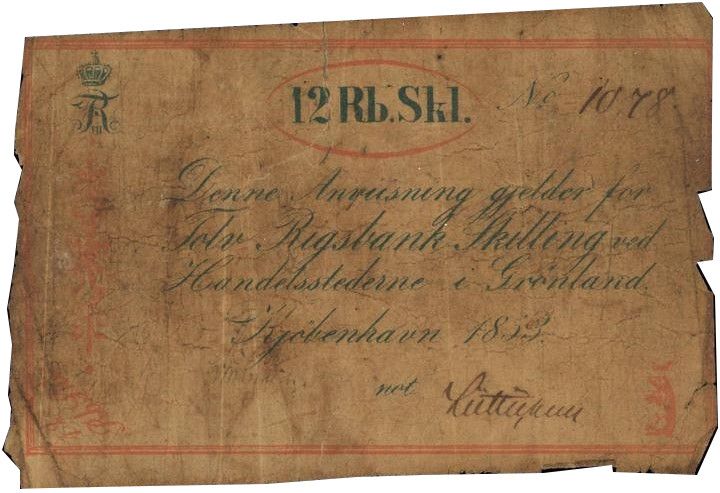 12 Rb. Skl.
No 1078.
Denne Anviisning gjelder for
Tolv Rigsbank Skilling ved
Handelsstederne i Grönland.
Kjöbenhavn 1853
not